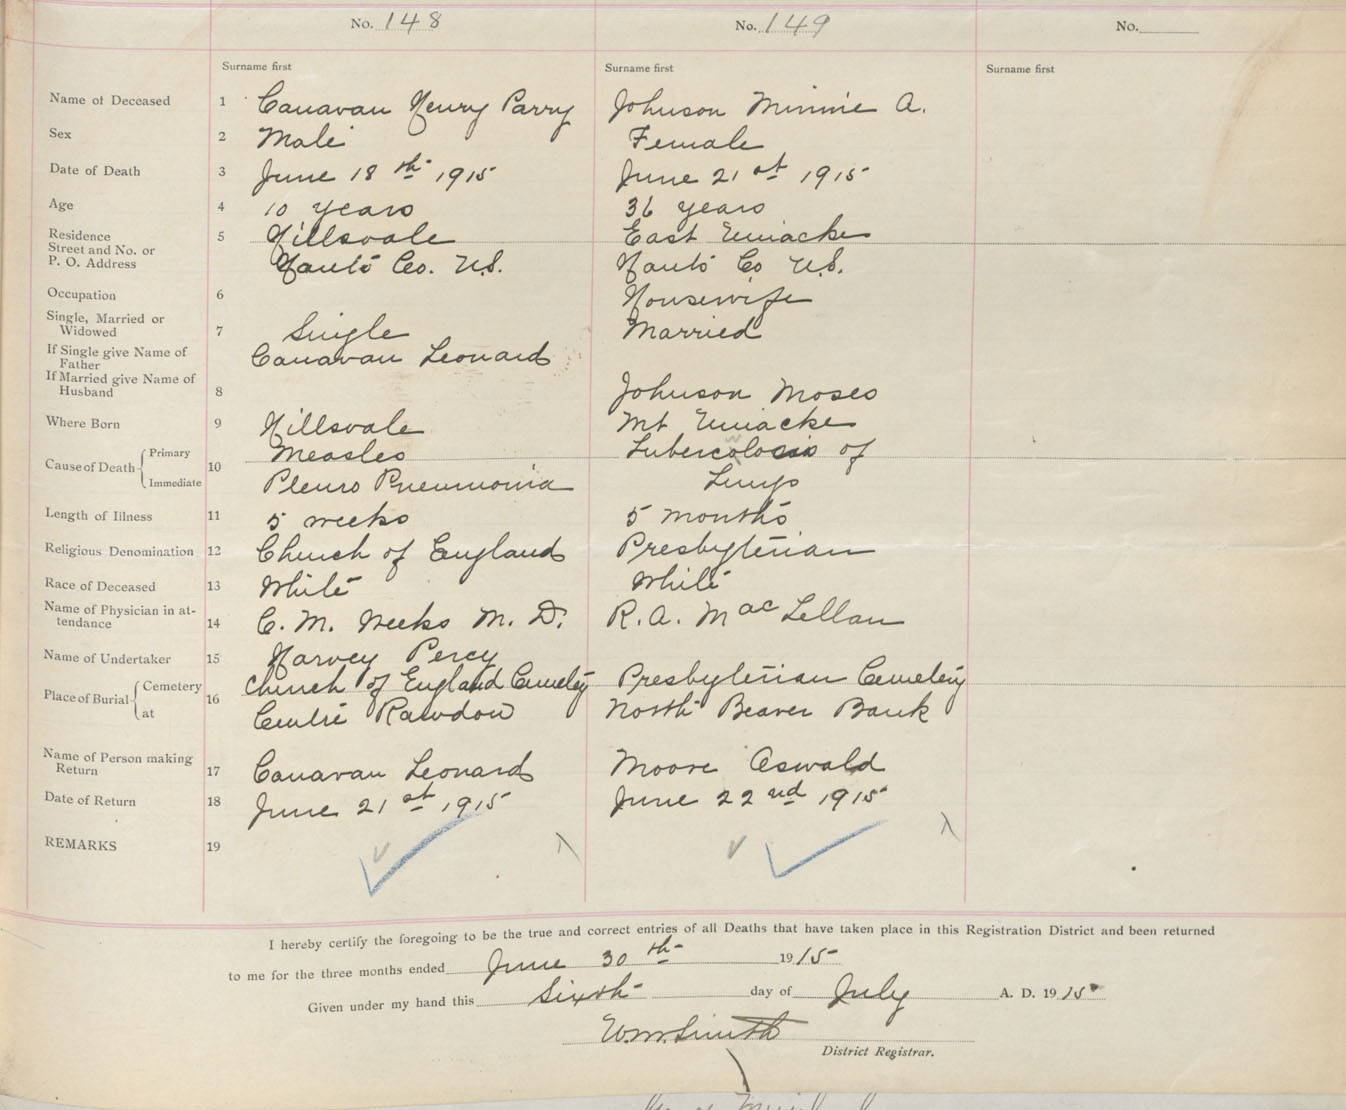 No. 148 No. 149 No.
Surname first Surname first Surname first
Name of Deceased 1 Canavan Henry Parry Johnson Minnie A.
Sex 2 Male Female
Date of Death 3 June 18th 1915 June 21st 1915
Age 4 10 years 36 years
Residence 5 Hillsvale East Uniacke
Street and No. or
P. O. Address Hants Co. N.S. Hants Co N.S.
Occupation 6 Housewife
Single, Married or
Widowed 7 Single Married
If Single give Name of
Father Canavan Leonard
If Married give Name of
Husband 8 Johnson Moses
Where Born 9 Hillsvale Mt Uniacke
Cause of Death Primary 10 Measles Tubercolosis of
Immediate Pleuro Pneumonia Lungs
Length of Illness 11 5 weeks 5 months
Religious Denomination 12 Church of England Presbyterian
Race of Deceased 13 White White
Name of Physician in at-
tendance 14 C. M. Weeks M. D. R. A. MacLellan
Name of Undertaker 15 Harvey Percy
Place of Burial Cemetery 16 Church of England Cemetery Presbyterian Cemetery
at Centre Rawdon North Beaver Bank
Name of Person making
Return 17 Canavan Leonard Moore Oswald
Date of Return 18 June 21st 1915 June 22nd 1915
REMARKS 19
I hereby certify the foregoing to be the true and correct entries of all Deaths that have taken place in this Registration District and been returned
to me for the three months ended June 30th 1915
Given under my hand this Sixth day of July A. D. 1915
Wm. Smith
District Registrar.